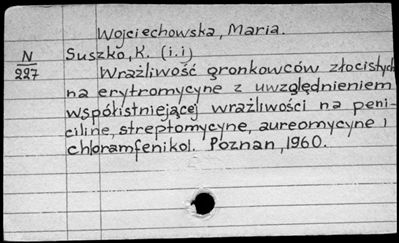 Wojciechowska, Maria.
N
227
Suszko, K. (i.i)
Wrażliwość gronkowców złocistych
na erytromycynę z uwzględnieniem
współistniejącej wrażliwości na peni-
cilinę, streptomycynę, aureomycynę i
chloramfenikol. Poznan, 1960.